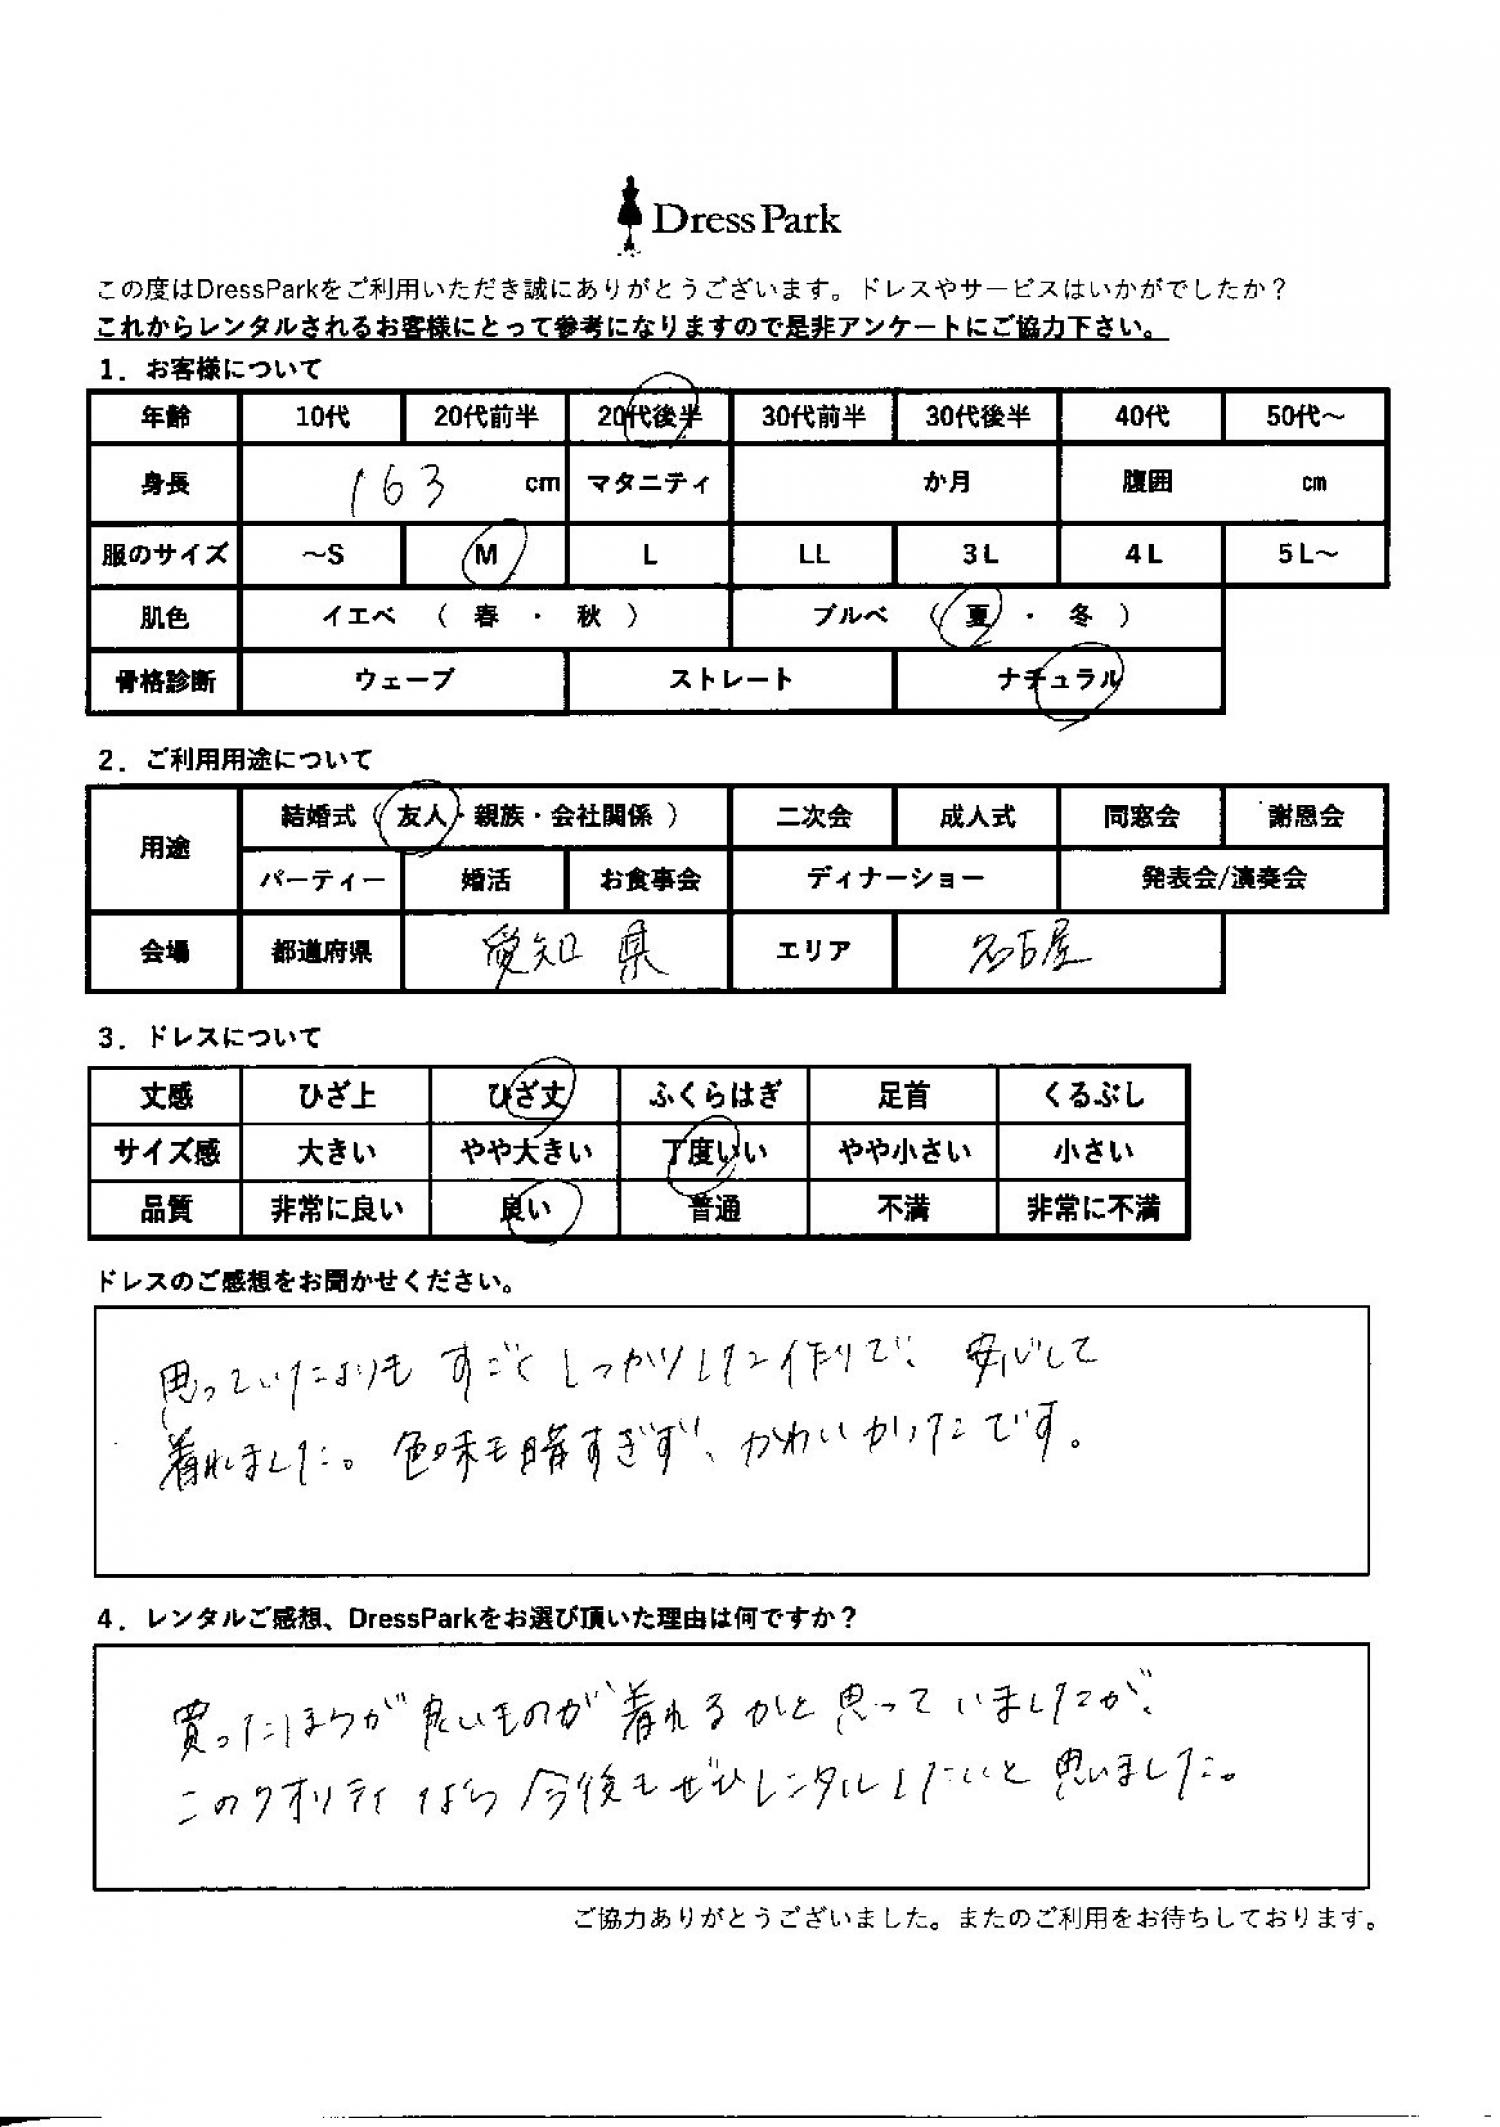 DressPark
この度はDressParkをご利用いただき誠にありがとうございます。ドレスやサービスはいかがでしたか？
これからレンタルされるお客様にとって参考になりますので是非アンケートにご協力下さい。
1．お客様について
年齢 10代 20代前半 20代後半 30代前半 30代後半 40代 50代～
身長 163 cm マタニティ か月 腹囲 cm
服のサイズ ～S M L LL 3L 4L 5L～
肌色 イエベ（ 春 ・ 秋 ） ブルベ（ 夏 ・ 冬 ）
骨格診断 ウェーブ ストレート ナチュラル
2．ご利用用途について
用途 結婚式（ 友人・親族・会社関係 ） 二次会 成人式 同窓会 謝恩会
パーティー 婚活 お食事会 ディナーショー 発表会/演奏会
会場 都道府県 愛知県 エリア 名古屋
3．ドレスについて
丈感 ひざ上 ひざ丈 ふくらはぎ 足首 くるぶし
サイズ感 大きい やや大きい 丁度いい やや小さい 小さい
品質 非常に良い 良い 普通 不満 非常に不満
ドレスのご感想をお聞かせください。
思っていたよりも すごくしっかりした作りで、安心して
着れました。色味も暗すぎず、かわいかったです。
4．レンタルご感想、DressParkをお選び頂いた理由は何ですか？
買ったほうが良いものが着れるかと思っていましたが、
このクオリティなら今後もぜひレンタルしたいと思いました。
ご協力ありがとうございました。またのご利用をお待ちしております。